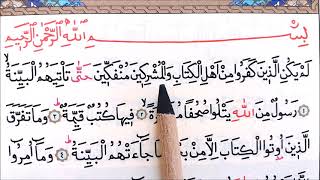 بِسْمِ اللهِ الرَّحْمٰنِ الرَّحِيْمِ
لَمْ يَكُنِ الَّذِيْنَ كَفَرُوْا مِنْ اَهْلِ الْكِتَابِ وَالْمُشْرِكِيْنَ مُنْفَكِّيْنَ حَتّٰى تَاْتِيَهُمُ الْبَيِّنَةُ ۙ
رَسُوْلٌ مِّنَ اللهِ يَتْلُوْا صُحُفًا مُّطَهَّرَةً ۙ فِيْهَا كُتُبٌ قَيِّمَةٌ ؕ وَمَا تَفَرَّقَ
الَّذِيْنَ اُوْتُوا الْكِتَابَ اِلَّا مِنْۢ بَعْدِ مَا جَآءَتْهُمُ الْبَيِّنَةُ ؕ وَمَآ اُمِرُوْٓا